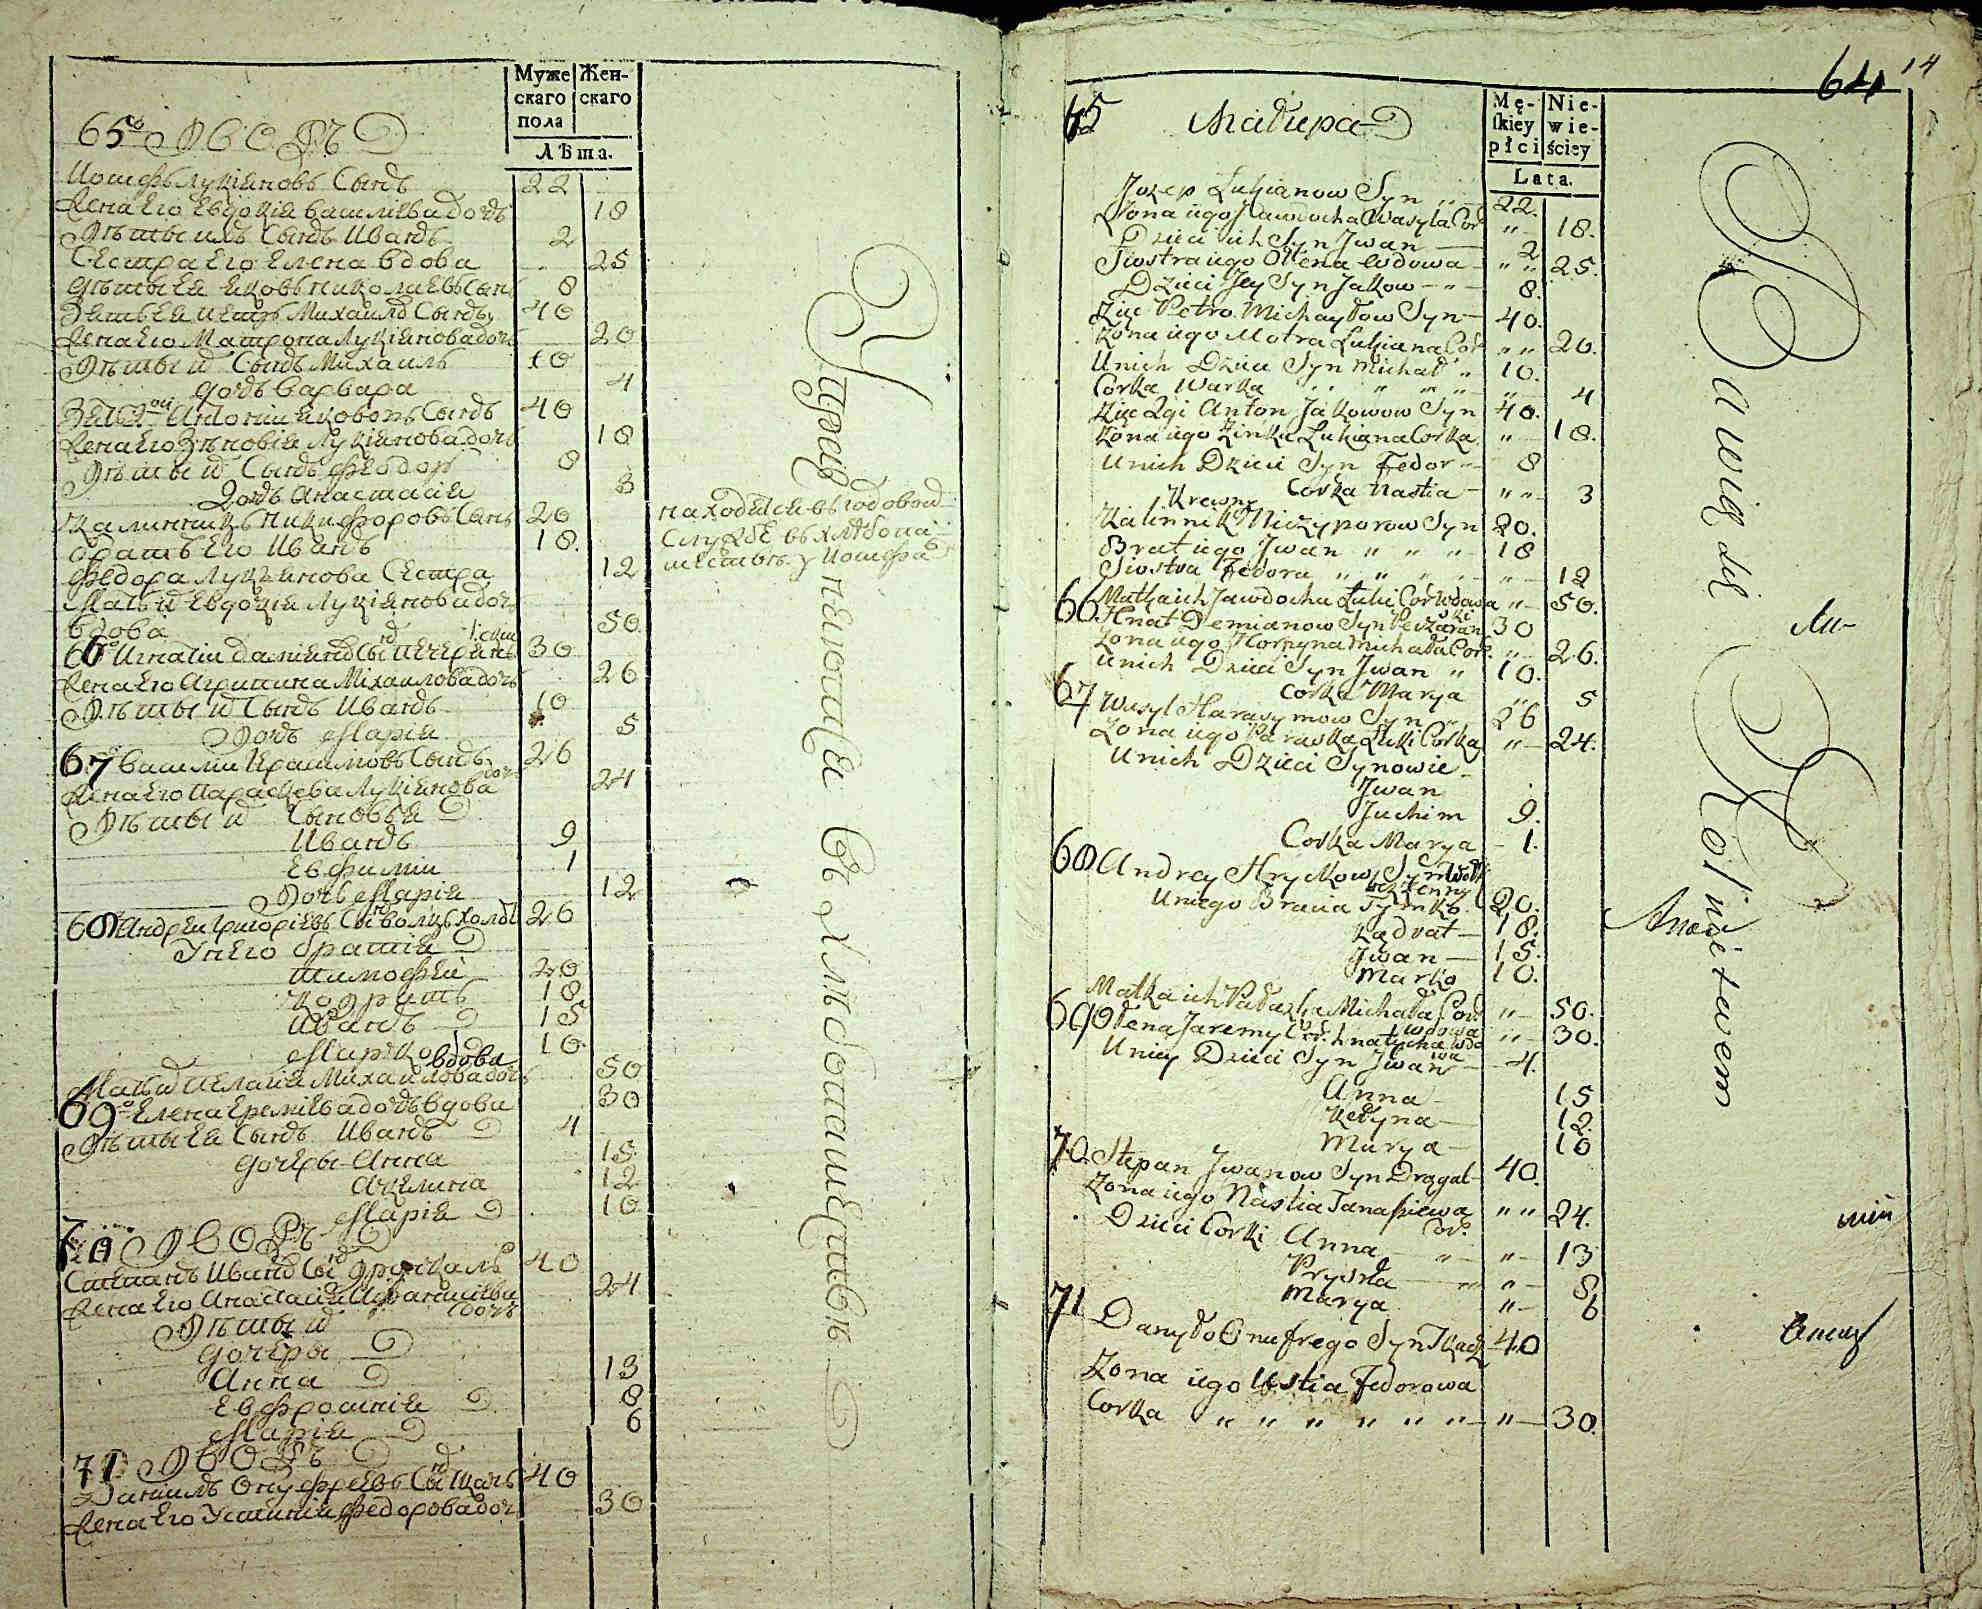 Муже Жен-
скаго скаго
пола
Лѣта.
65 Дворъ
Иосифъ Лукіяновъ Сынъ 22
Жена Его Евдокія Василіева дочь 18
Дѣти ихъ Сынъ Иванъ 2
Сестра Его Елена вдова 25
Дѣти Ея Яковъ Николаевъ Сынъ 8
Зять Ея Петръ Михаилѡ Сынъ 40
Жена Его Матрона Лукіянова дочь 20
Сынъ Михаилъ 10
дочь Варвара 4
Антоніи Якововъ Сынъ 40
Жена Его Зѣновія Лукіянова дочь 18
Сынъ Феодоръ 8
Дочь Анастасія 3
Калинникъ Никифоровъ Сынъ 20
братъ Его Иванъ 18
Федора Лукіянова Сестра 12
Мать Евдокія Лукіянова дочь
вдова 50
66 Игнатіи Даміянѡ 30
Жена Его Агрипина Міхаилова дочь 26
Сынъ Иванъ 10
Дочь Марія 5
67 Василіи Ерасимовъ Сынъ 26
Жена Его Параскева Лукіянова дочь 24
Сыновья
Иванъ 9
Евфиміи 1
Дочь Марія 12
68 Андреи Григоріевъ Сынъ 26
У него братія
Тимофей 20
Кодратъ 18
Иванъ 15
Марко 10
вдова
Мать Пелагія Михаилова дочь 50
69 Елена Ереміева дочь вдова 30
Дѣти Ея Сынъ Иванъ 4
дочеры Анна 15
Акелина 12
Марія 10
70 Дворъ
Степанъ Иванѡ 40
Жена Его Анастасія 24
дочь
дочеры
Анна 13
Евфросинія 8
Марія 6
71 Дворъ
Даниилъ Онуфріевъ Ткачъ 40
Жена Его Устинія Федорова дочь 30
находятся въ годовой
Службе въ хлѣбопа-
шестве у Иосифа
Упражняются въ хлѣбопашествѣ
64 14
Mę- Nie-
skiey wie-
płci ściey
Lata.
65
Jozep Lukianow Syn 22.
Zona iego Jawdocha Wasyla Cor 18.
Dzieci ich Syn Jwan 2
Siostra iego Ołena wdowa 25.
Dzieci Jey Syn Jakow 8.
Zięc Petro Michayłow Syn 40.
Zona iego Motra Lukiana Cor 20.
Unich Dzieci Syn Michał 10.
Corka Warka 4
Zięc 2gi Anton Jakowow Syn 40.
Zona iego Zinka Lukiana Corka 18.
Unich Dzieci Syn Fedor 8
Corka Nastia 3
Krewny
Kalinnik Niczyporow Syn 20.
Brat iego Jwan 18
Siostra Fedora 12
Matka ich Jawdocha Łuki Cor Wdowa 50.
66 Hnat Demianow Syn 30
Zona iego Horpyna Michała Cor. 26.
Unich Dzieci Syn Jwan 10.
Corka Marya 5
67 Wasyl Harasymow Syn 26
Zona iego Paraska Łuki Corka 24.
Unich Dzieci Synowie
Jwan
Juchim 9.
Corka Marya 1.
68 Andrey Hryckow Syn
bez Zenny
Uniego Bracia Tymko 20.
Kądrat 18.
Jwan 15.
Marko 10.
Matka ich Pałazka Michała Cor. 50.
wdowa
69 Ołena Jaremy Cor. 30.
Uniey Dzieci Syn Jwan 4.
Anna 15
Kełyna 12.
Marya 10
70. Stepan Jwanow Syn Dragal 40.
Zona iego Nastia Tanasiewa 24.
Cor.
Dzieci Corki Anna 13
Pryska 8
Marya 6
71 Danyło Onufrego Syn Tkacz 40
Zona iego Ustia Fedorowa
Corka 30.
Bawią się Rolnictwem